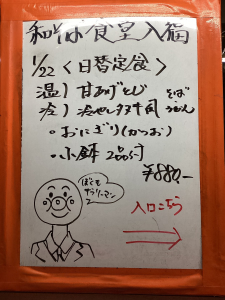 和そば食堂入福
1/22〈日替定食〉
温)甘あげそば
冷)冷やしタヌキ そば うどん
・おにぎり(かつお)
・小鉢2品付
¥880.-
ぼくも サラリーマン
入口こちら